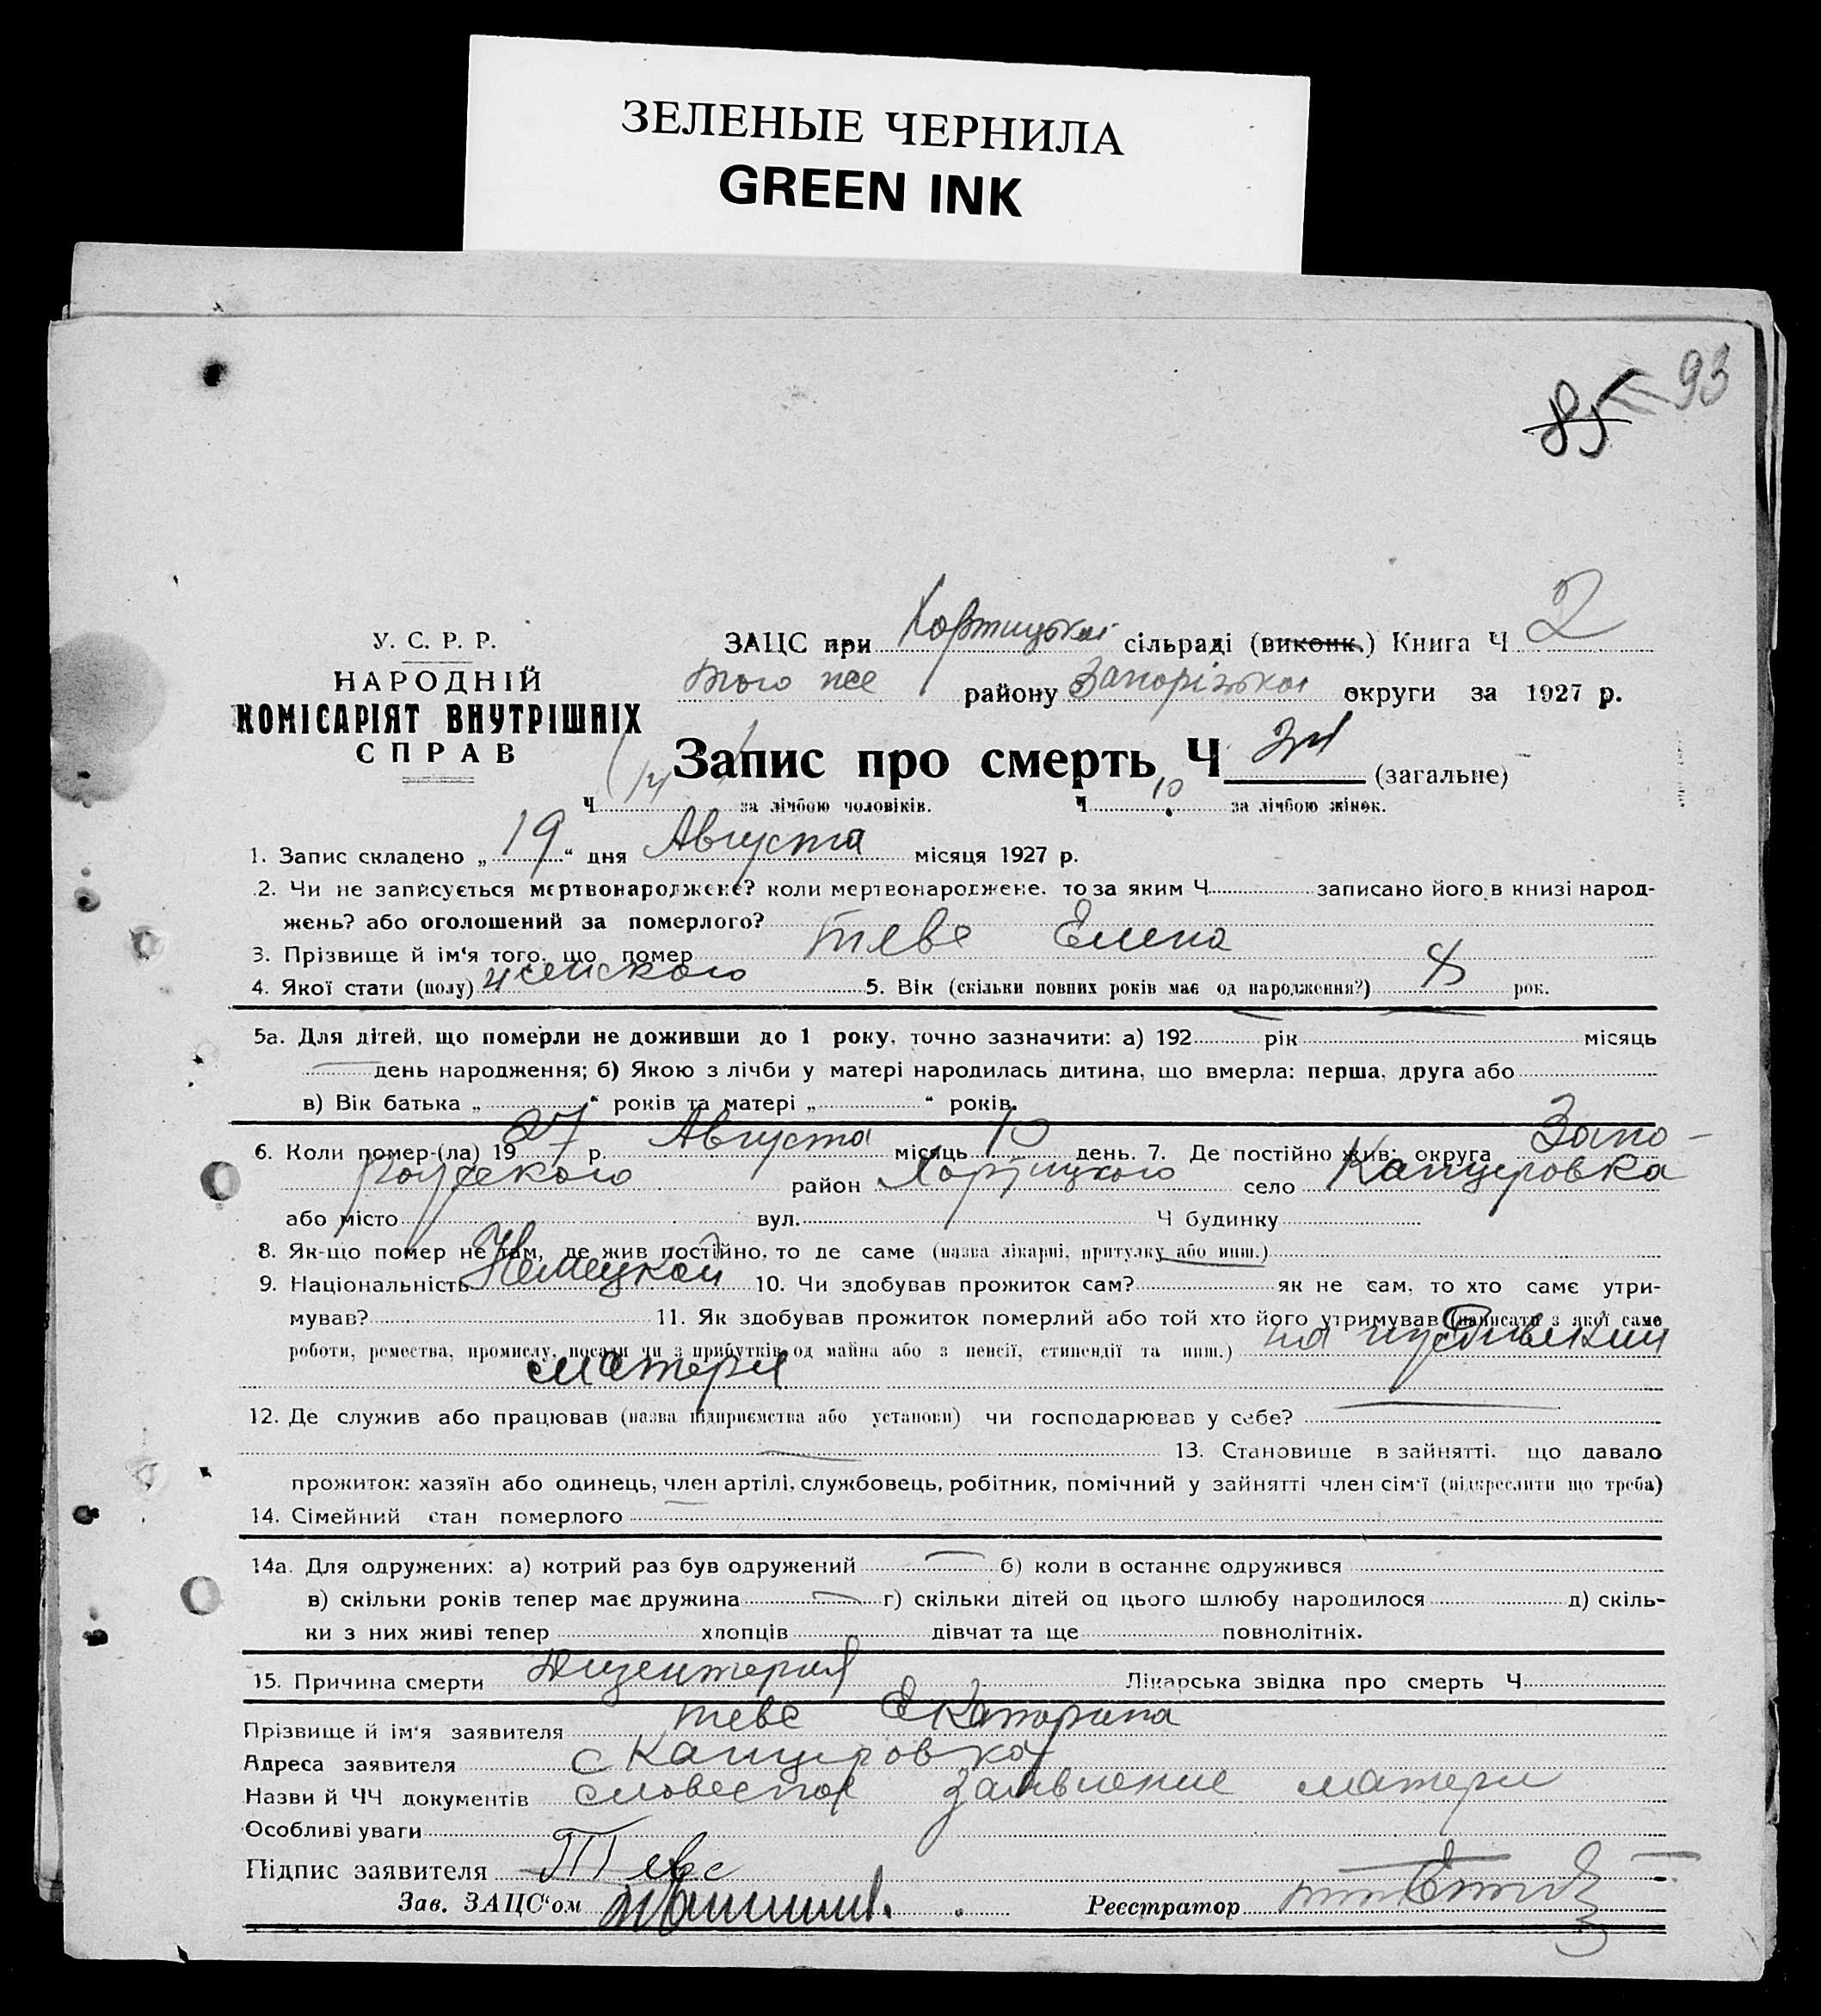 ЗЕЛЕНЫЕ ЧЕРНИЛА
GREEN INK
85 93
У. С. Р. Р.
НАРОДНІЙ
КОМІСАРІЯТ ВНУТРІШНІХ
СПРАВ
ЗАЦС при Хортицькій сільраді (виконк.) Книга Ч 2
того же району Запорізької округи за 1927 р.
Запис про смерть Ч (загальне)
Ч 14 за лічбою чоловіків. Ч 10 за лічбою жінок.
1. Запис складено „ 19 “ дня Августа місяця 1927 р.
2. Чи не записується мертвонароджене? коли мертвонароджене, то за яким Ч записано його в книзі народ-
жень? або оголошений за померлого?
3. Прізвище й ім'я того, що помер Тевс Елена
4. Якої стати (полу) женского 5. Вік (скільки повних років має од народження?) 8 рок.
5а. Для дітей, що померли не доживши до 1 року, точно зазначити: а) 192 рік місяць
день народження; б) Якою з лічби у матері народилась дитина, що вмерла: перша, друга або
в) Вік батька „ “ років та матері „ “ років.
6. Коли помер-(ла) 1927 р. Августа місяць 10 день. 7. Де постійно жив: округа Запо-
рожского район Хортицкого село Канцеровка
або місто вул. Ч будинку
8. Як-що помер не там, де жив постійно, то де саме (назва лікарні, притулку або инш.)
9. Національність Немецкой 10. Чи здобував прожиток сам? як не сам, то хто саме утри-
мував? 11. Як здобував прожиток померлий або той хто його утримував (написати з якої саме
роботи, ремества, промислу, посади чи з прибутків од майна або з пенсії, стипендії та инш.) на иждивении
матери
12. Де служив або працював (назва підприємства або установи) чи господарював у себе?
13. Становище в зайнятті, що давало
прожиток: хазяїн або одинець, член артілі, службовець, робітник, помічний у зайнятті член сім'ї (підкреслити що треба)
14. Сімейний стан померлого
14а. Для одружених: а) котрий раз був одружений б) коли в останнє одружився
в) скільки років тепер має дружина г) скільки дітей од цього шлюбу народилося д) скіль-
ки з них живі тепер хлопців дівчат та ще повнолітніх.
15. Причина смерти Дизентерия Лікарська звідка про смерть Ч
Прізвище й ім'я заявителя Тевс Екатерина
Адреса заявителя с Канцеровка
Назви й ЧЧ документів словесное заявление матери
Особливі уваги
Підпис заявителя Тевс
Зав. ЗАЦС'ом Реєстратор